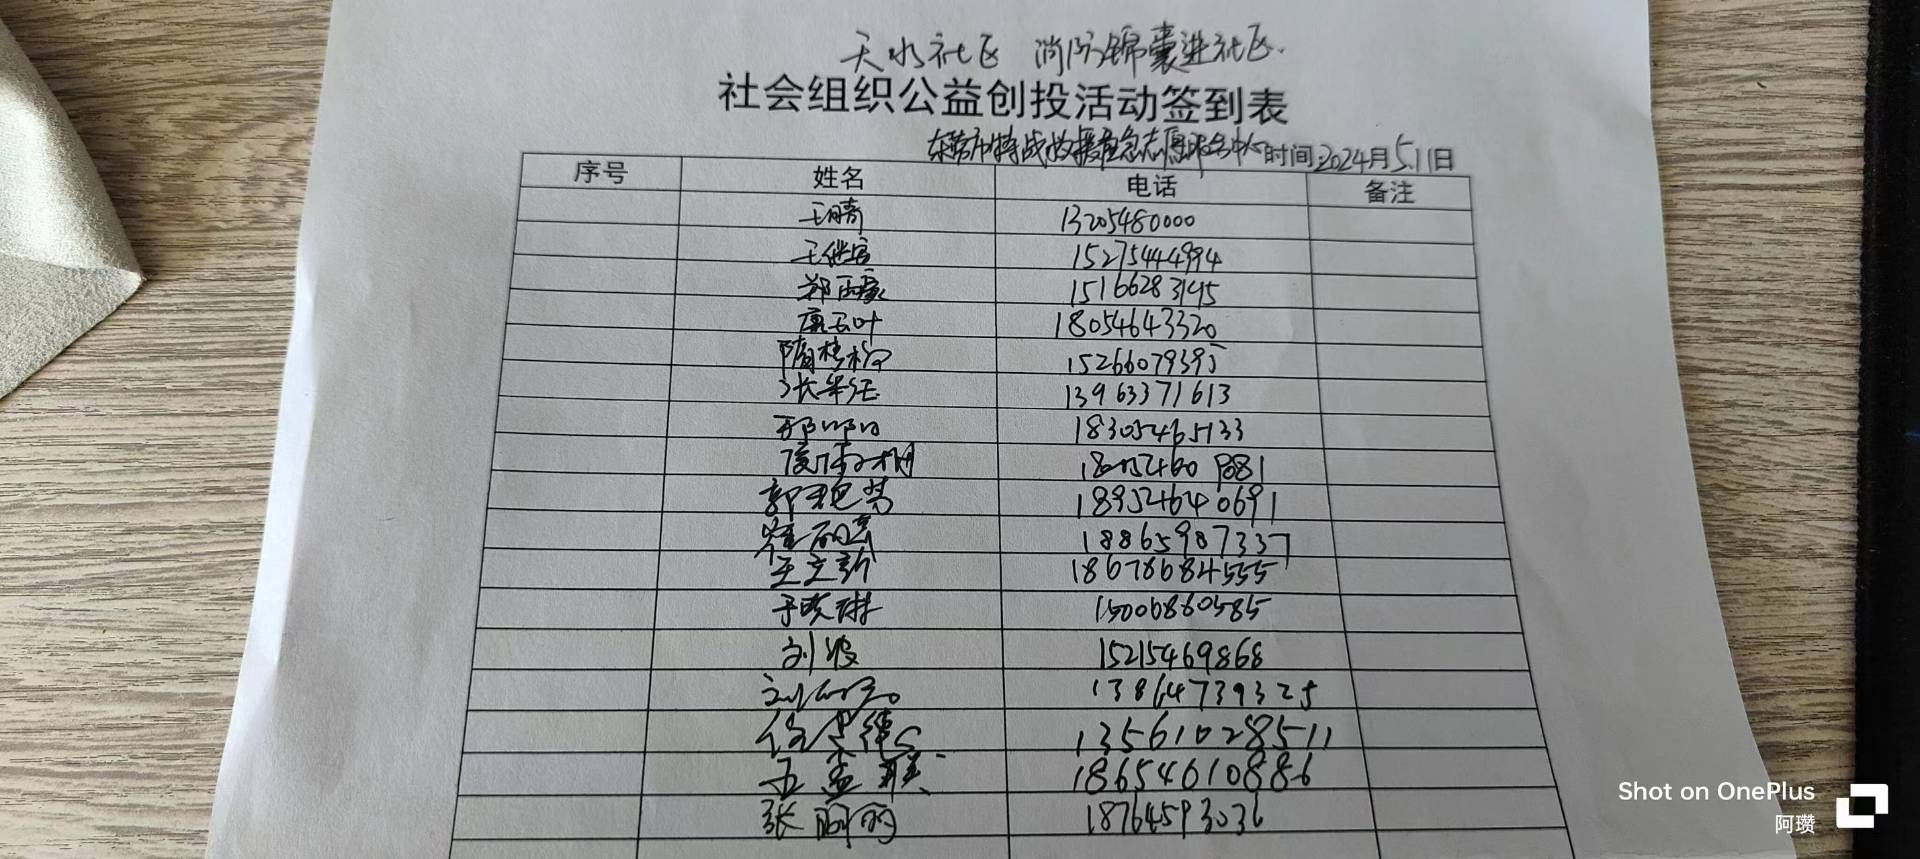 天水社区 消防锦囊进社区.
社会组织公益创投活动签到表
东营市特战救援应急志愿服务中心 时间:2024年5月11日
序号 姓名 电话 备注
王晴 13205480000
王继宾 15275444994
郑雨豪 15166283145
康云叶 18054643320
隋桂柳 15266079395
张华廷 13963371613
18305465133
郭艳芳 189524640691
崔 18865987337
王立新 18678684555
于晓琳 15006860585
刘波 15215469868
刘 13864739325
任 13561028511
王孟联 18654610886
张丽 18764593036
Shot on OnePlus
阿瓒